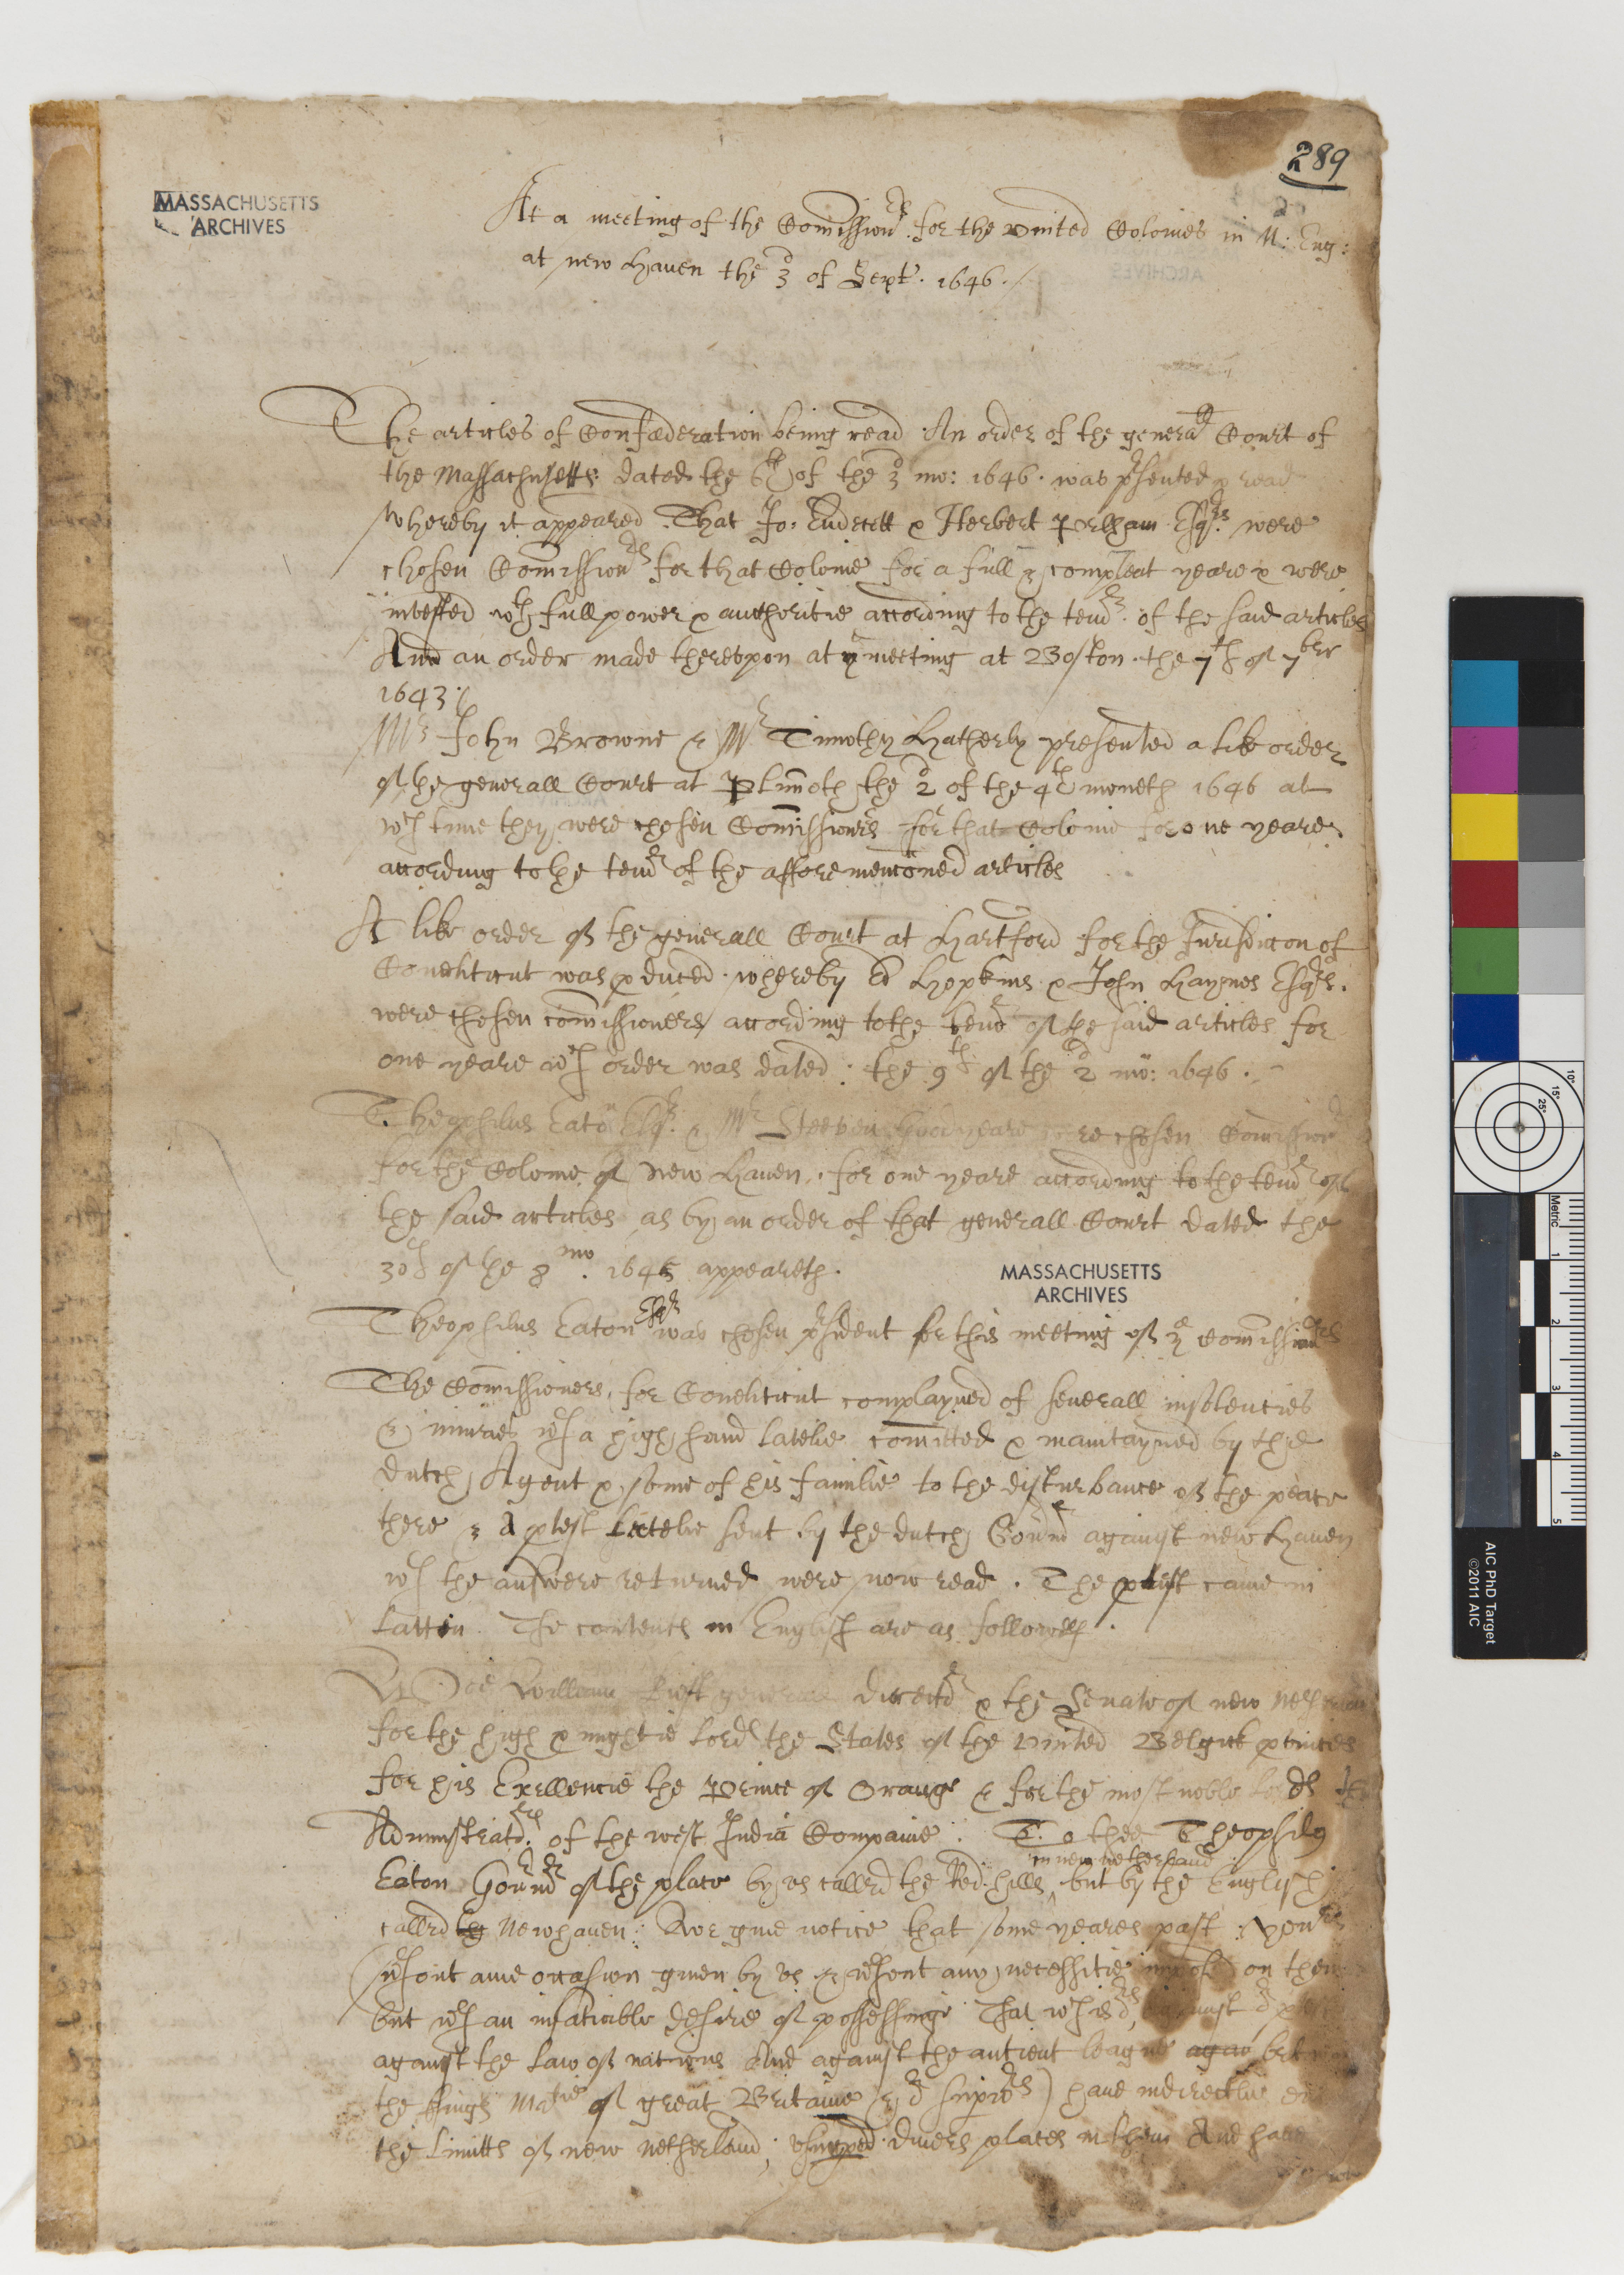 289
MASSACHUSETTS
ARCHIVES
At a meeting of the Comissionrs for the vnited Colonies in N: Eng:
at new Haven the 3d of Septr. 1646.
The articles of Confæderation being read An order of the generall Court of
the Massachusetts dated the 6th of the 3d mo: 1646. was prsented & read
Whereby it appeared That Jo: Endecott & Herbert Pelham Esqrs were
chosen Comissionrs for that Colonie for a full & compleat yeare & were
invested wth full power & authoritie according to the tenor of the said articles
And an order made therevpon at ye meeting at Boston the 7th of 7ber
1643./
Mr John Browne & Mr Timothy Hatherly presented a like order
of the generall Court at Plimoth the 2d of the 4th moneth 1646 at
wch time they were chosen Comissioners for that Colonie for one yeare
according to the tenor of the afforementioned articles
A like order of the generall Court at Hartford for the Jurisdiccon of
Conecticut was pduced whereby Ed Hopkins & John Haynes Esqrs.
were chosen comissioners according to the tenor of the said articles for
one yeare wch order was dated: the 9th of the 2d mo: 1646.
Theophilus Eato Esqr. & Mr Steeven Goodyeare were chosen Comissionrs
for the Colonie of New Haven. for one yeare according to the tenor of
the said articles as by an order of that generall Court dated the
30th of the 8 mo. 1645 appeareth.
MASSACHUSETTS
ARCHIVES
Theophilus Eaton Esqr was chosen prsident for this meeting of ye Comissionrs
The Comissioners for Conecticut complayned of severall insolencies
& iniuries wth a high hand latelie comitted & maintayned by the
dutch Agent & some of his familie to the disturbance of the peace
there & A ptest latelie sent by the dutch Gouernor against new Haven
wth the answere returned were now read. The ptest came in
Latten The contents in English are as followeth.
Wee William Kieft generall director & the Senate of new
for the high & mightie Lords the States of the vnited Belgick pvinces
for his Excellencie the Prince of Orange & for the most noble Lords the
Administrators of the west India Companie: To thee Theophilus
Eaton Gouernor of the place by vs called the Red hills in new netherland but by the English
called Newhaven: Wee giue notice that some yeares past yours
wthout anie occasion giuen by vs & wthout any necessitie imposed on them
but wth an insatiable desire of possessing that wch is ours against our
against the Law of nations And against the antient league betwixt
the kings Matie of great Britaine & our superiors) haue indirectlie
the limitts of new Netherland, vsurped divers places in them And haue